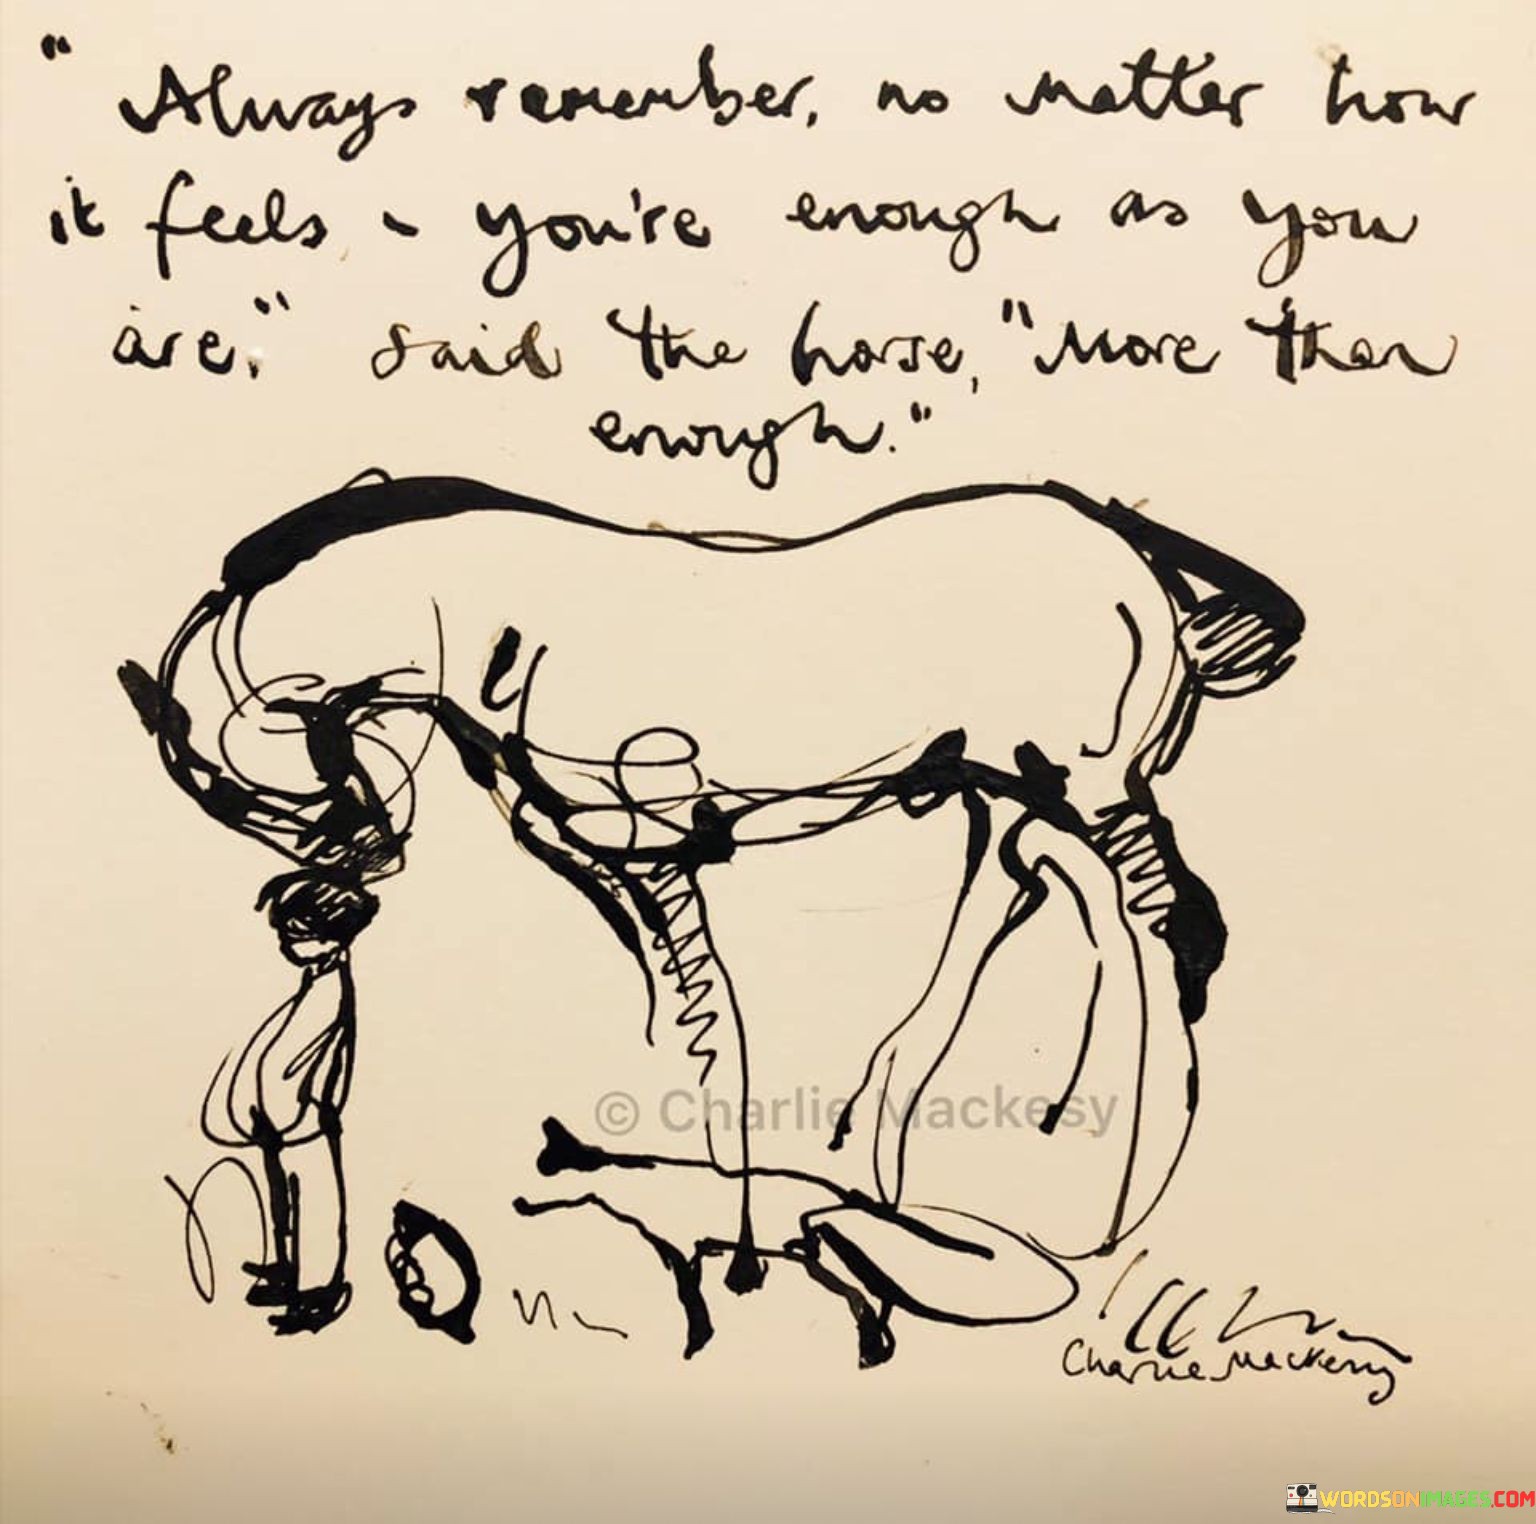 " Always remember, no matter how
it feels - you're enough as you
are." said the horse, "More than
enough."
© Charlie Mackesy
Charlie Mackesy
WORDSONIMAGES.COM